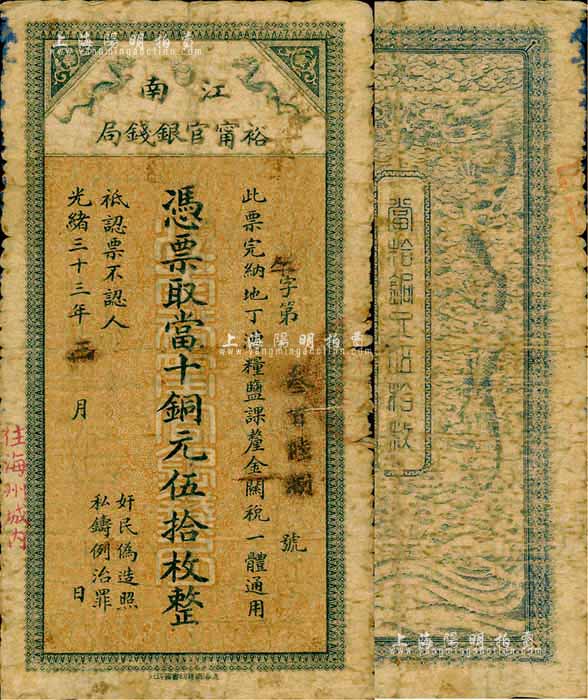 上海陽明拍賣
www.yangmingauction.com
江南
裕甯官銀錢局
字第
號
此票完納地丁漕糧鹽課釐金關稅一體通用
憑票取當十銅元伍拾枚整
祗認票不認人
光緒三十三年
月
日
奸民偽造照
私鑄例治罪
住海州城內
當拾銅元伍拾枚
上海陽明拍賣
www.yangmingauction.com
上海陽明拍賣
www.yangmingauction.com